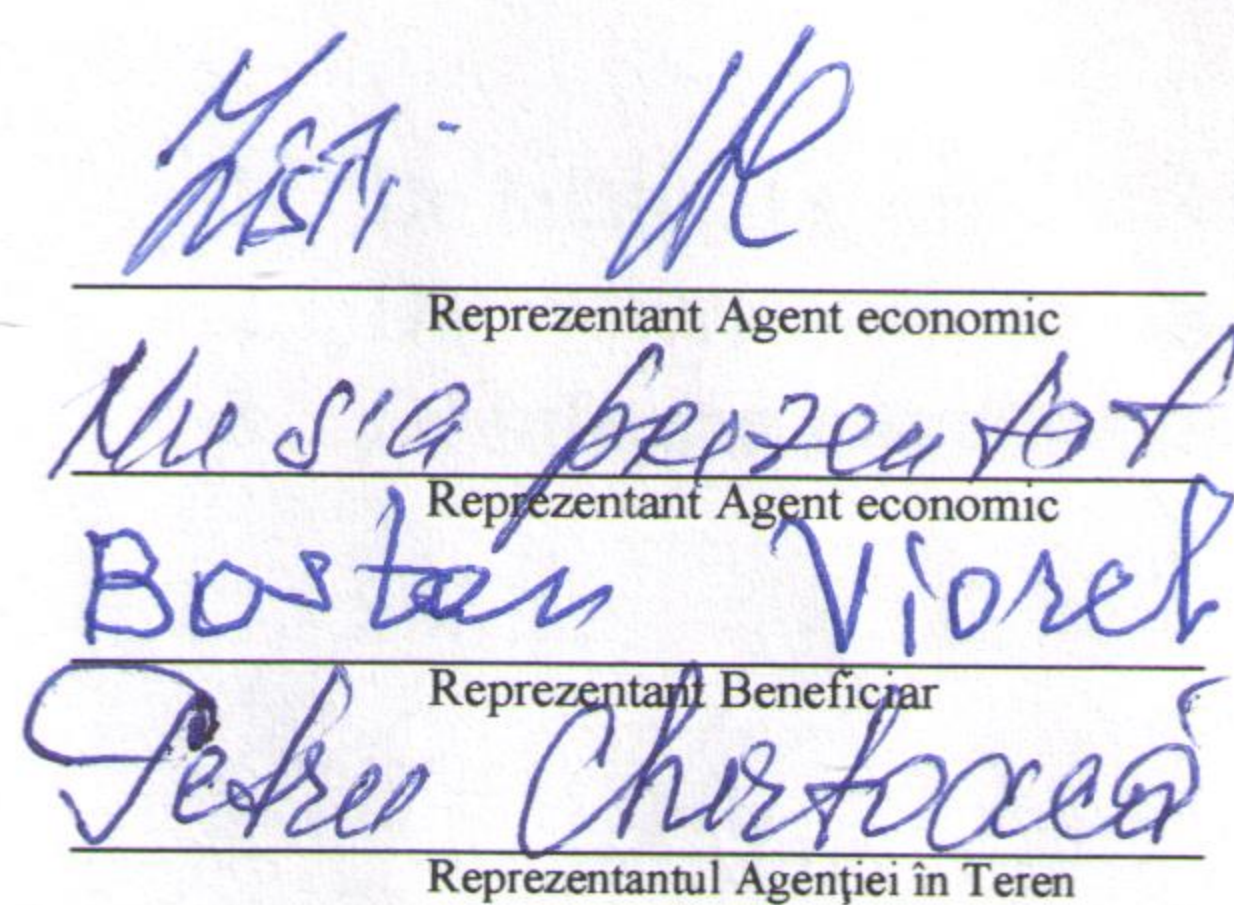 Reprezentant Agent economic
Nu s'a prezentat
Reprezentant Agent economic
Bostan Viorel
Reprezentant Beneficiar
Petru Chirtoacă
Reprezentantul Agenţiei în Teren